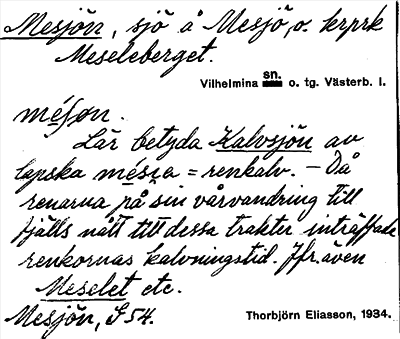 Mesjön, sjö å Mesjö, o. krprk
Meseleberget.
Vilhelmina sn. o. tg. Västerb. l.
méson.
Lär betyda Kalvsjön av
lapska méssa = renkalv. – Då
renarna på sin vårvandring till
fjälls nått till dessa trakter inträffade
renkornas kalvningstid. Jfr. även
Meselet etc.
Mesjön, S 54.
Thorbjörn Eliasson, 1934.